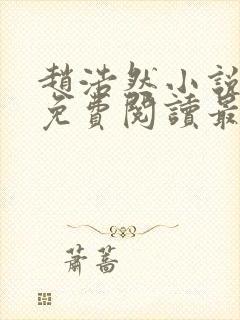 趙浩然小說
免費閱讀最
蕭蒿